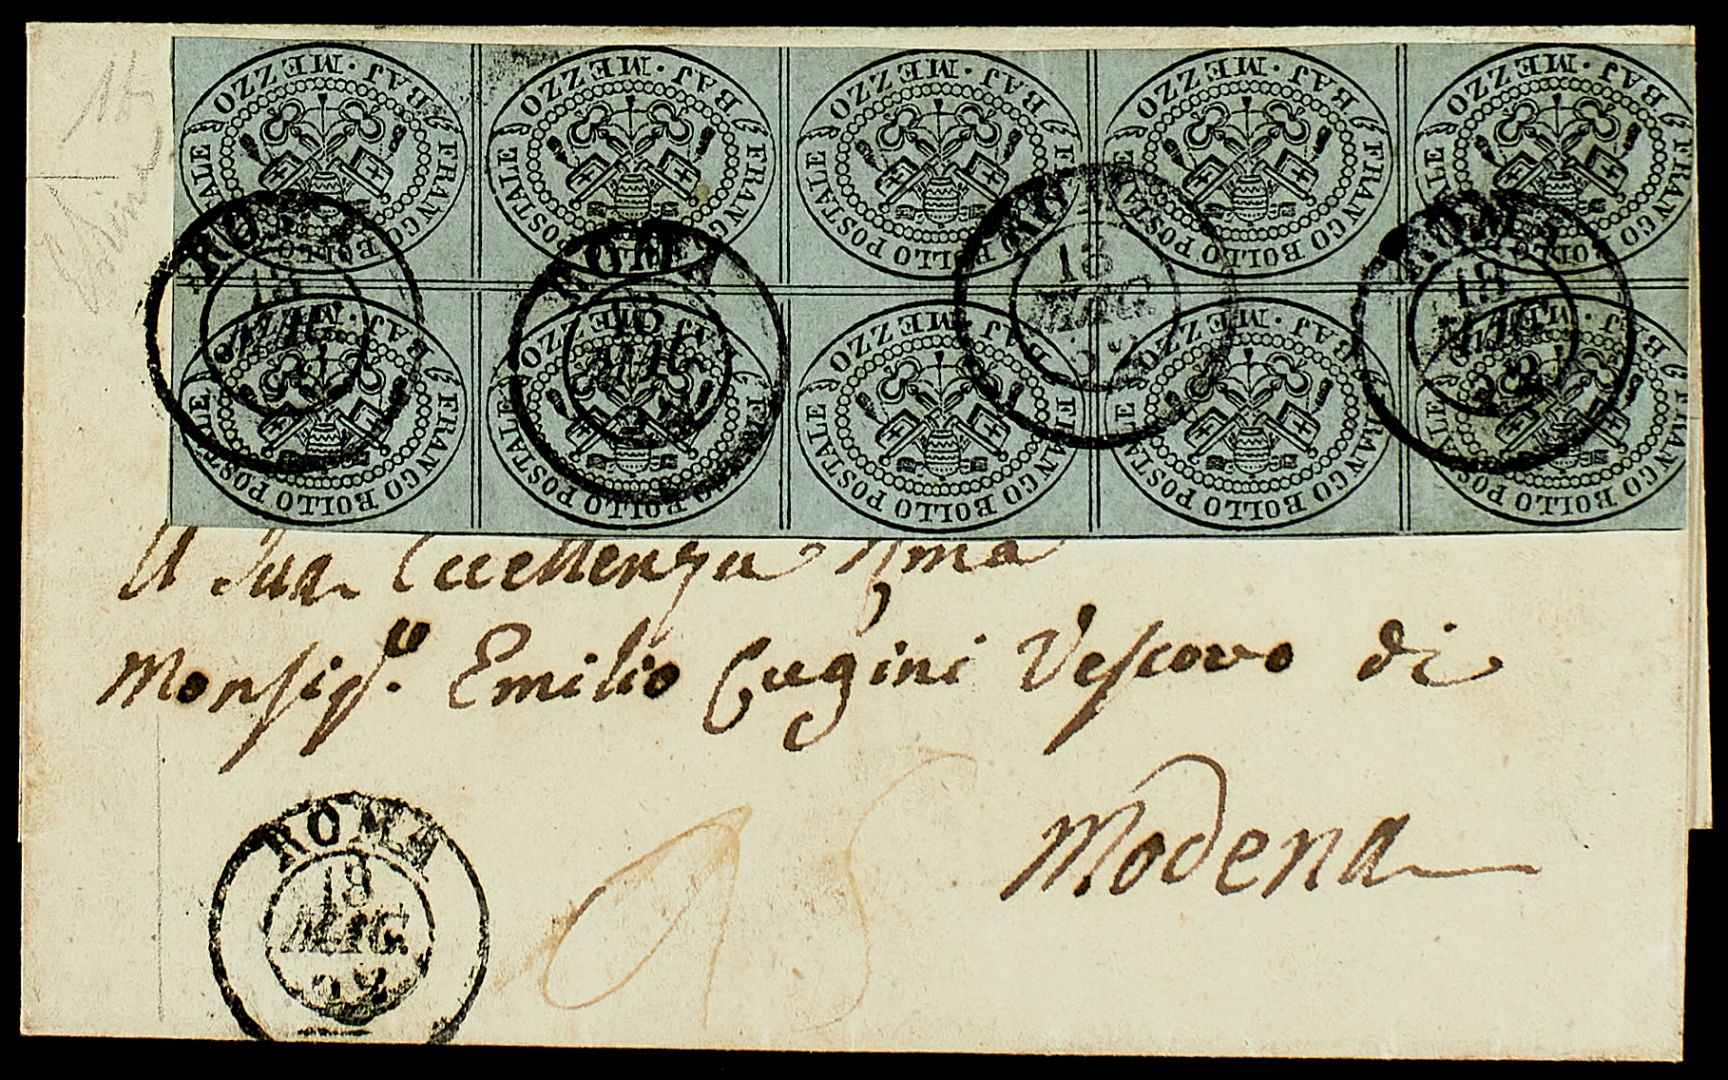 15
FRANCO BOLLO POSTALE · BAJ · MEZZO
FRANCO BOLLO POSTALE · BAJ · MEZZO
FRANCO BOLLO POSTALE · BAJ · MEZZO
FRANCO BOLLO POSTALE · BAJ · MEZZO
FRANCO BOLLO POSTALE · BAJ · MEZZO
ROMA
ROMA
18 MAG
ROMA 18 MAG
FRANCO BOLLO POSTALE · BAJ · MEZZO
FRANCO BOLLO POSTALE · BAJ · MEZZO
FRANCO BOLLO POSTALE · BAJ · MEZZO
FRANCO BOLLO POSTALE · BAJ · MEZZO
FRANCO BOLLO POSTALE · BAJ · MEZZO
A Sua Eccellenza Rma
Monsigr. Emilio Cugini Vescovo di
Modena
ROMA
18
MAG.